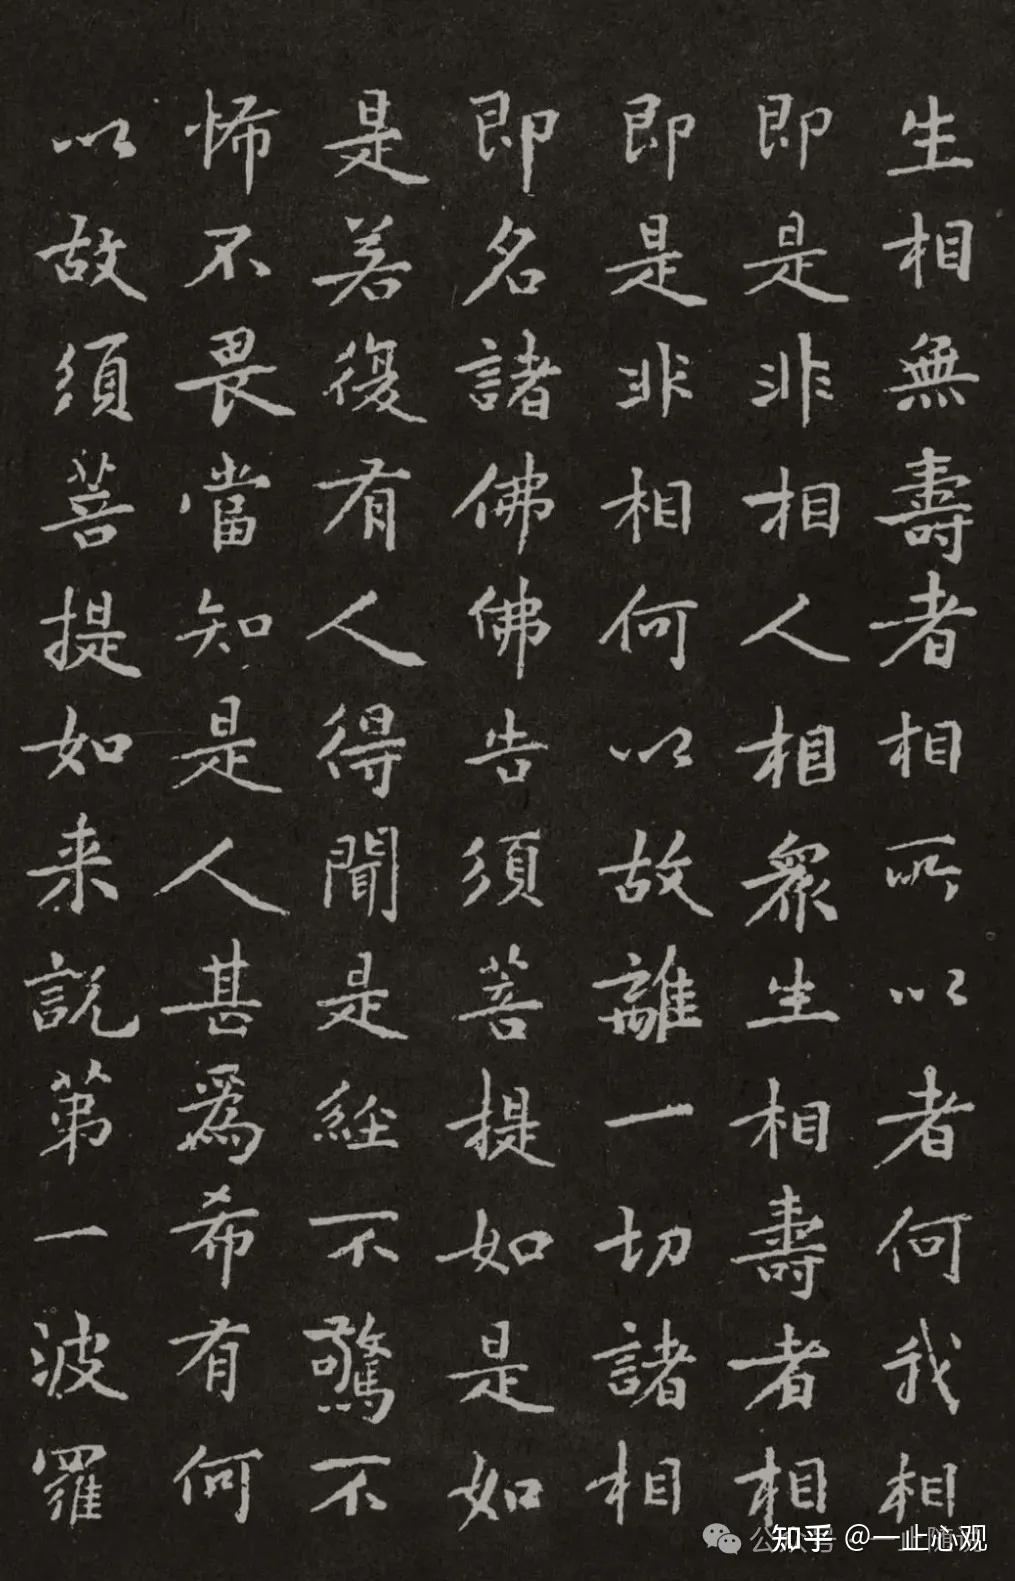 生相無壽者相所以者何我相
即是非相人相衆生相壽者相
即是非相何以故離一切諸相
即名諸佛佛告須菩提如是如
是若復有人得聞是經不驚不
怖不畏當知是人甚爲希有何
以故須菩提如来説第一波羅
知乎 @一止心观
公众号